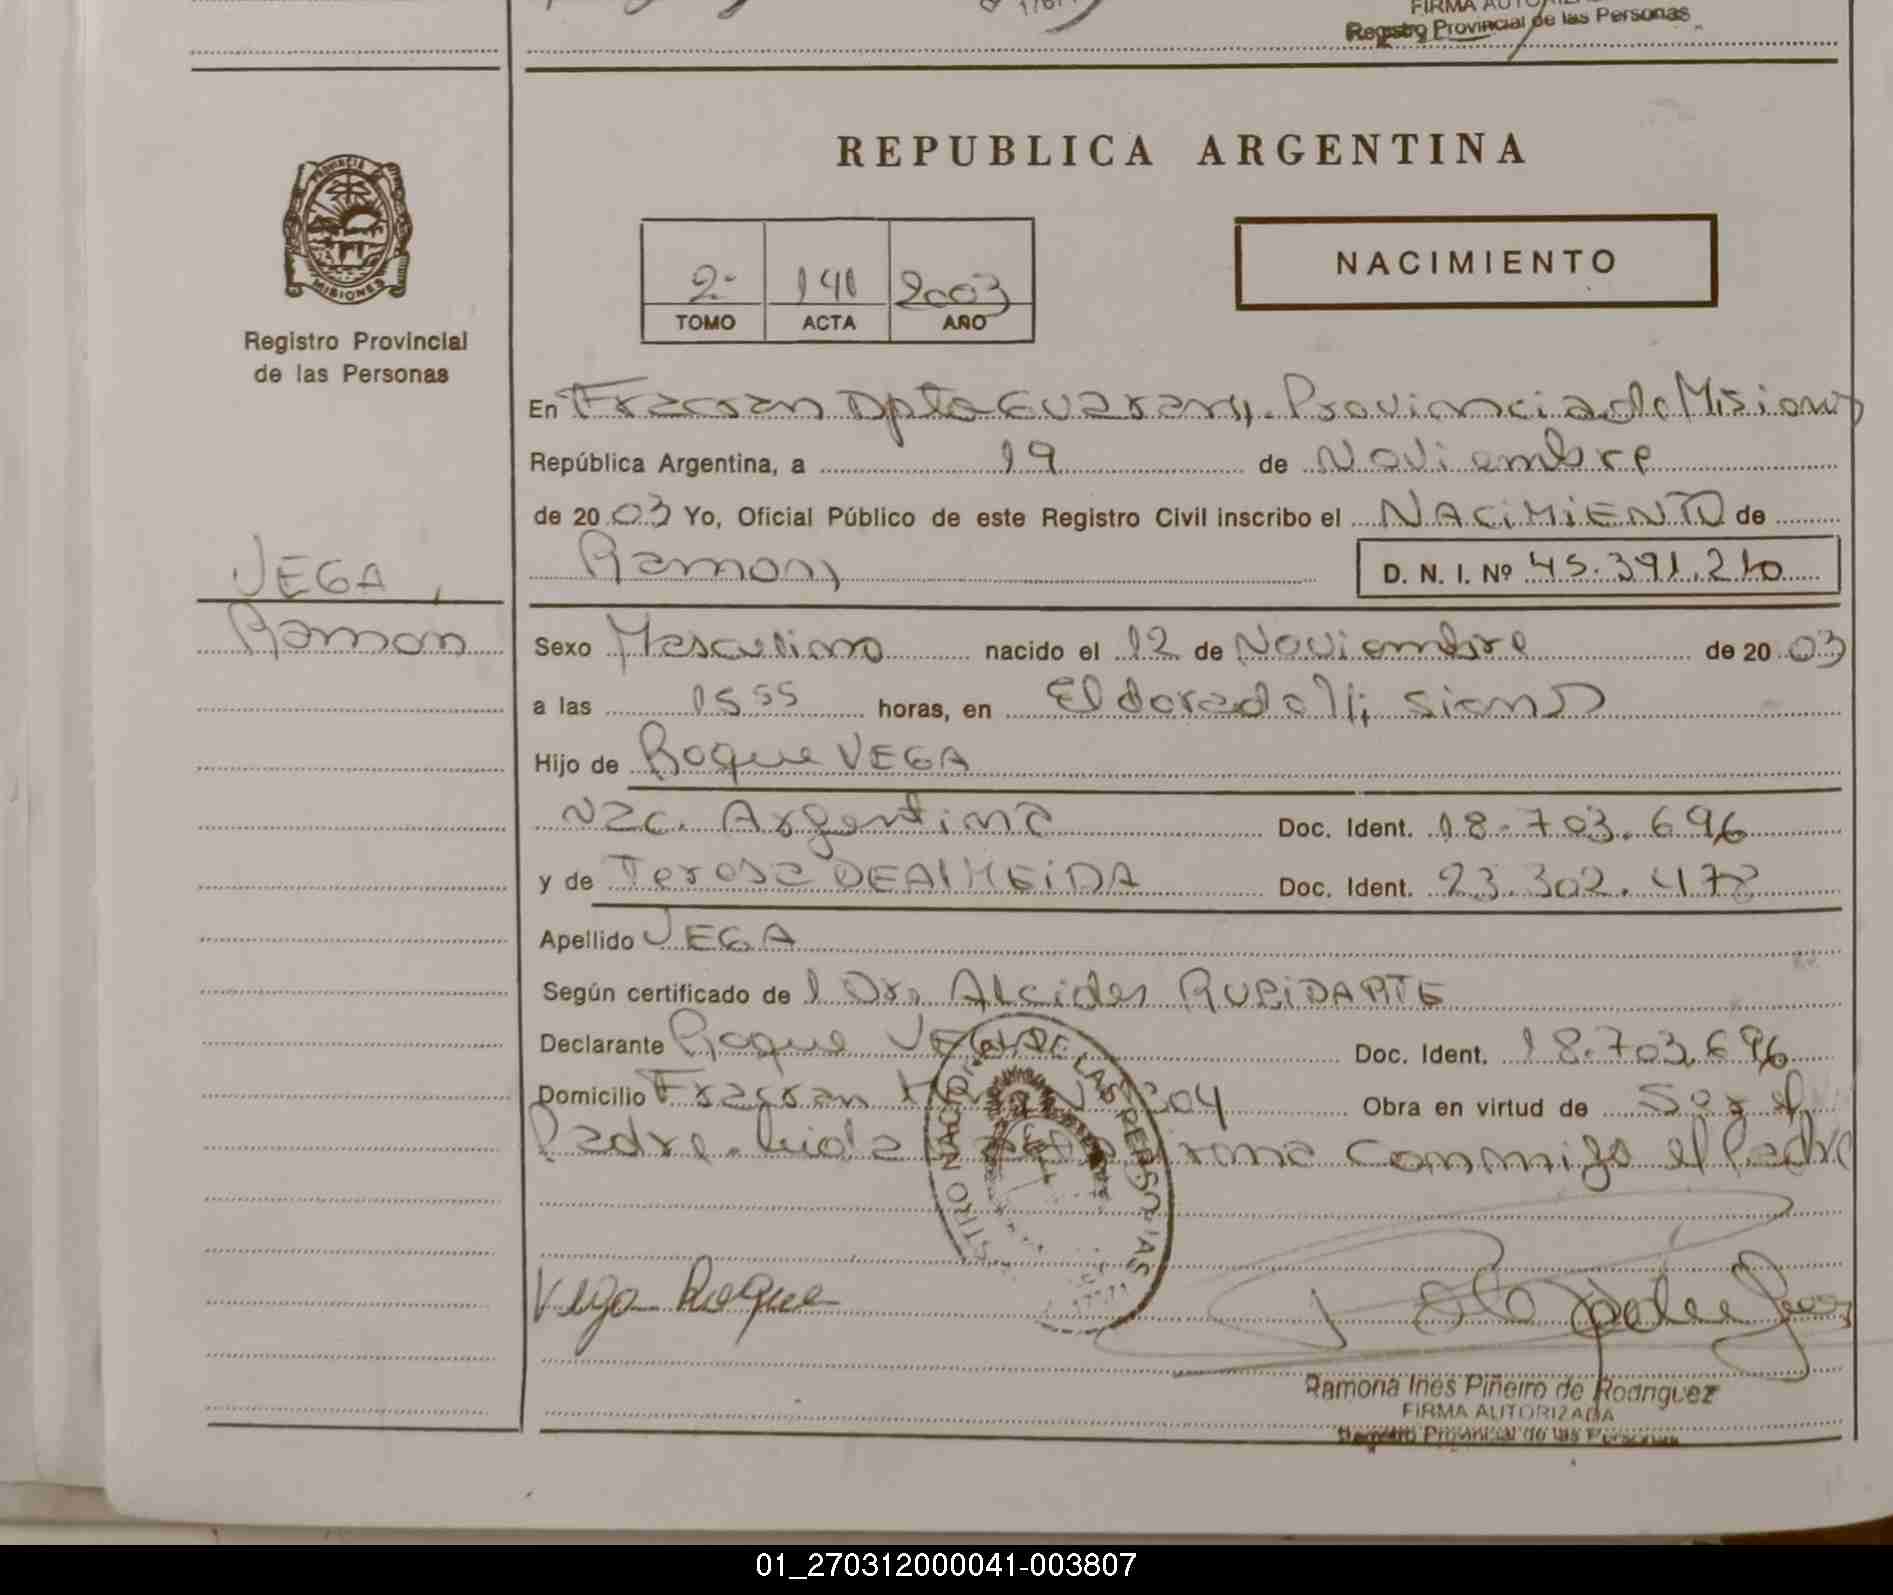 FIRMA AUTORIZ
Registro Provincial de las Personas
REPUBLICA ARGENTINA
PROVINCIA
MISIONES
Registro Provincial
de las Personas
2- 141 2003
TOMO ACTA AÑO
NACIMIENTO
En Fracran Dpto Guarany, Provincia de Misiones
República Argentina, a 19 de Noviembre
de 2003 Yo, Oficial Público de este Registro Civil inscribo el NACIMIENTO de
Ramon, D. N. I. Nº 45.391.210
VEGA,
Ramon
Sexo Masculino nacido el 12 de Noviembre de 2003
a las 15 55 horas, en Eldorado Misiones
Hijo de Roque VEGA
Nac. Argentina Doc. Ident. 18.703.696
y de Teresa DEALMEIDA Doc. Ident. 23.302.478
Apellido VEGA
Según certificado de l Dr. Alcides
Declarante Roque VEGA Doc. Ident. 18.703.696
Domicilio Fracran 304 Obra en virtud de Ser el
Padre. leida firma conmigo el Padre
Vega Roque
Ramona Ines Piñeiro de Rodriguez
FIRMA AUTORIZADA
Registro Provincial de las Personas
01_270312000041-003807